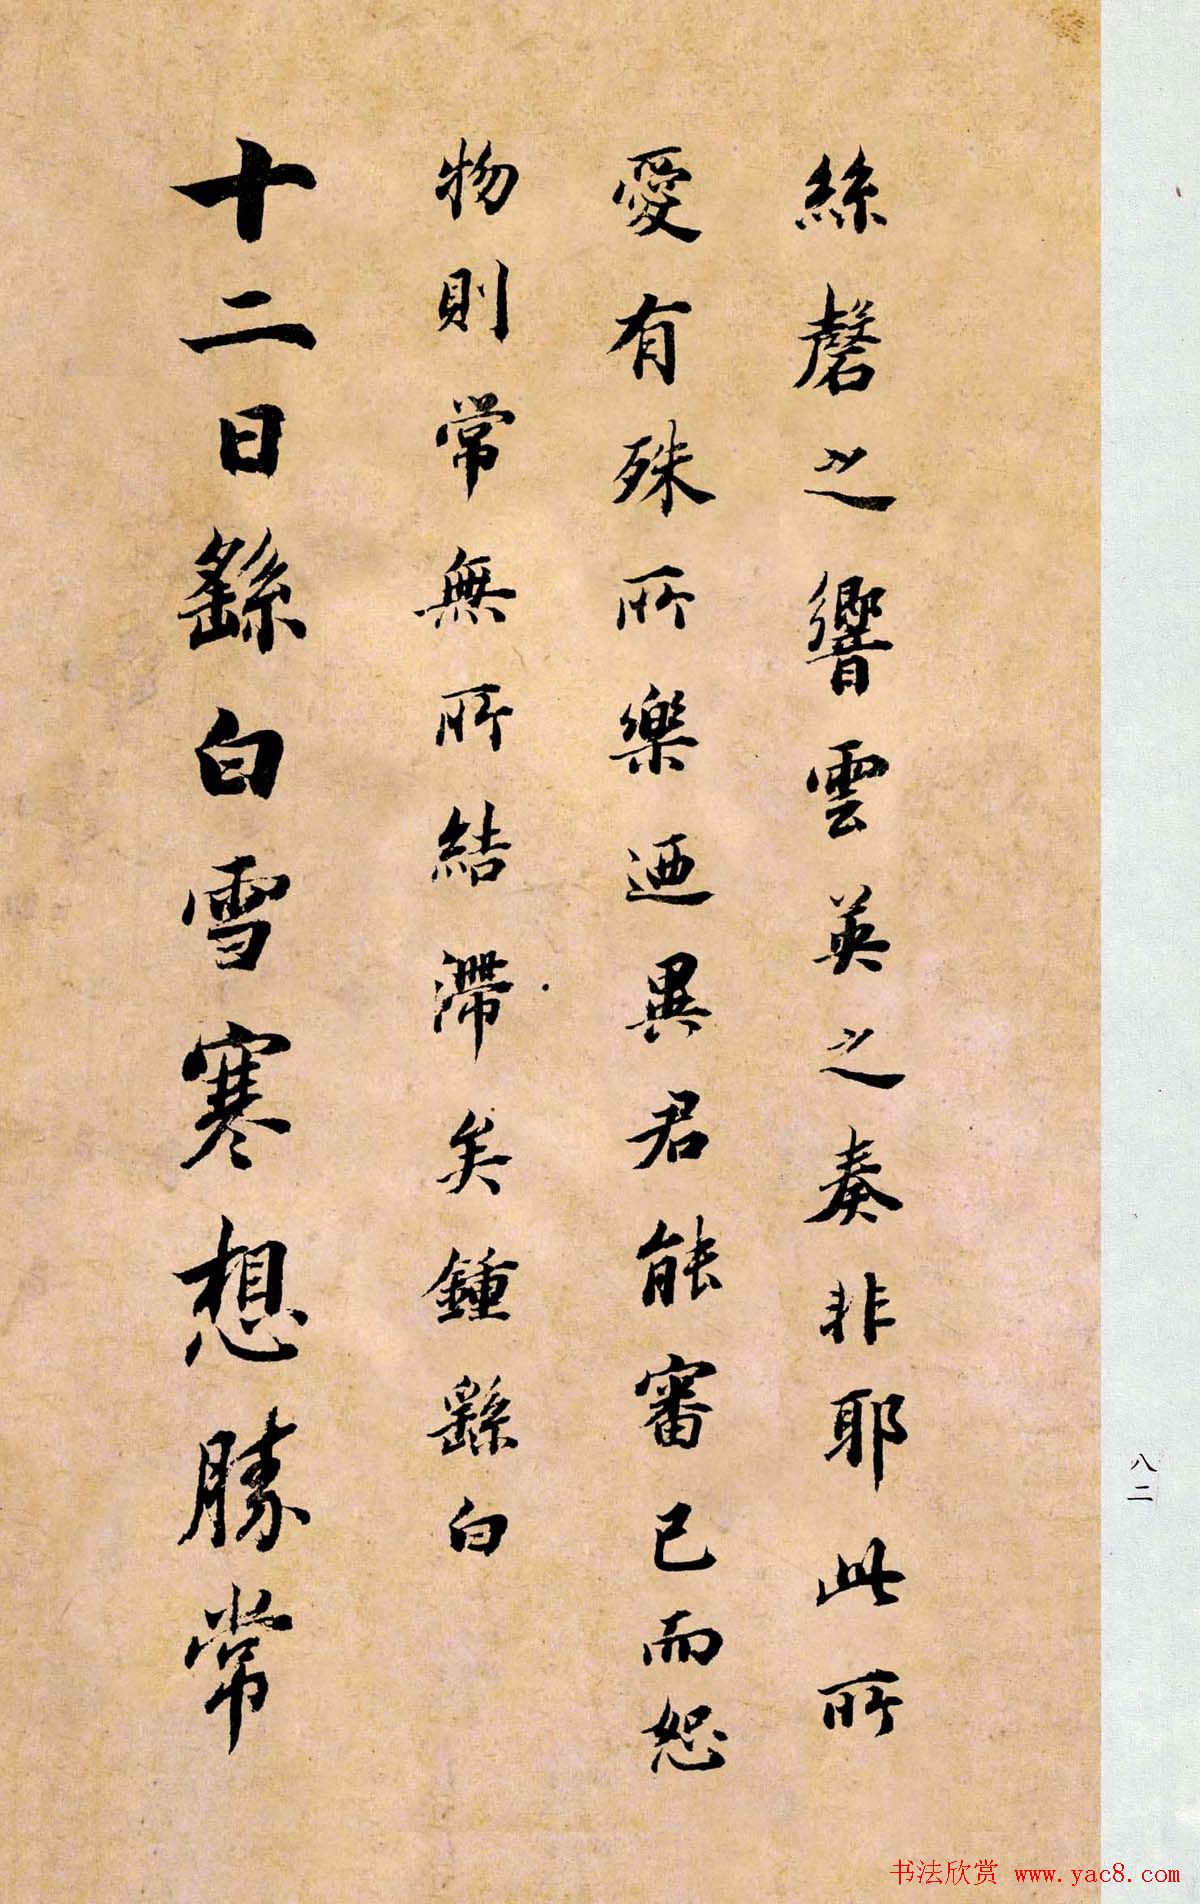 絲磬之響雲英之奏非耶此所
愛有殊所樂迺異君能審己而恕
物則常無所結滯矣鍾繇白
十二日繇白雪寒想勝常
八二
书法欣赏 www.yac8.com